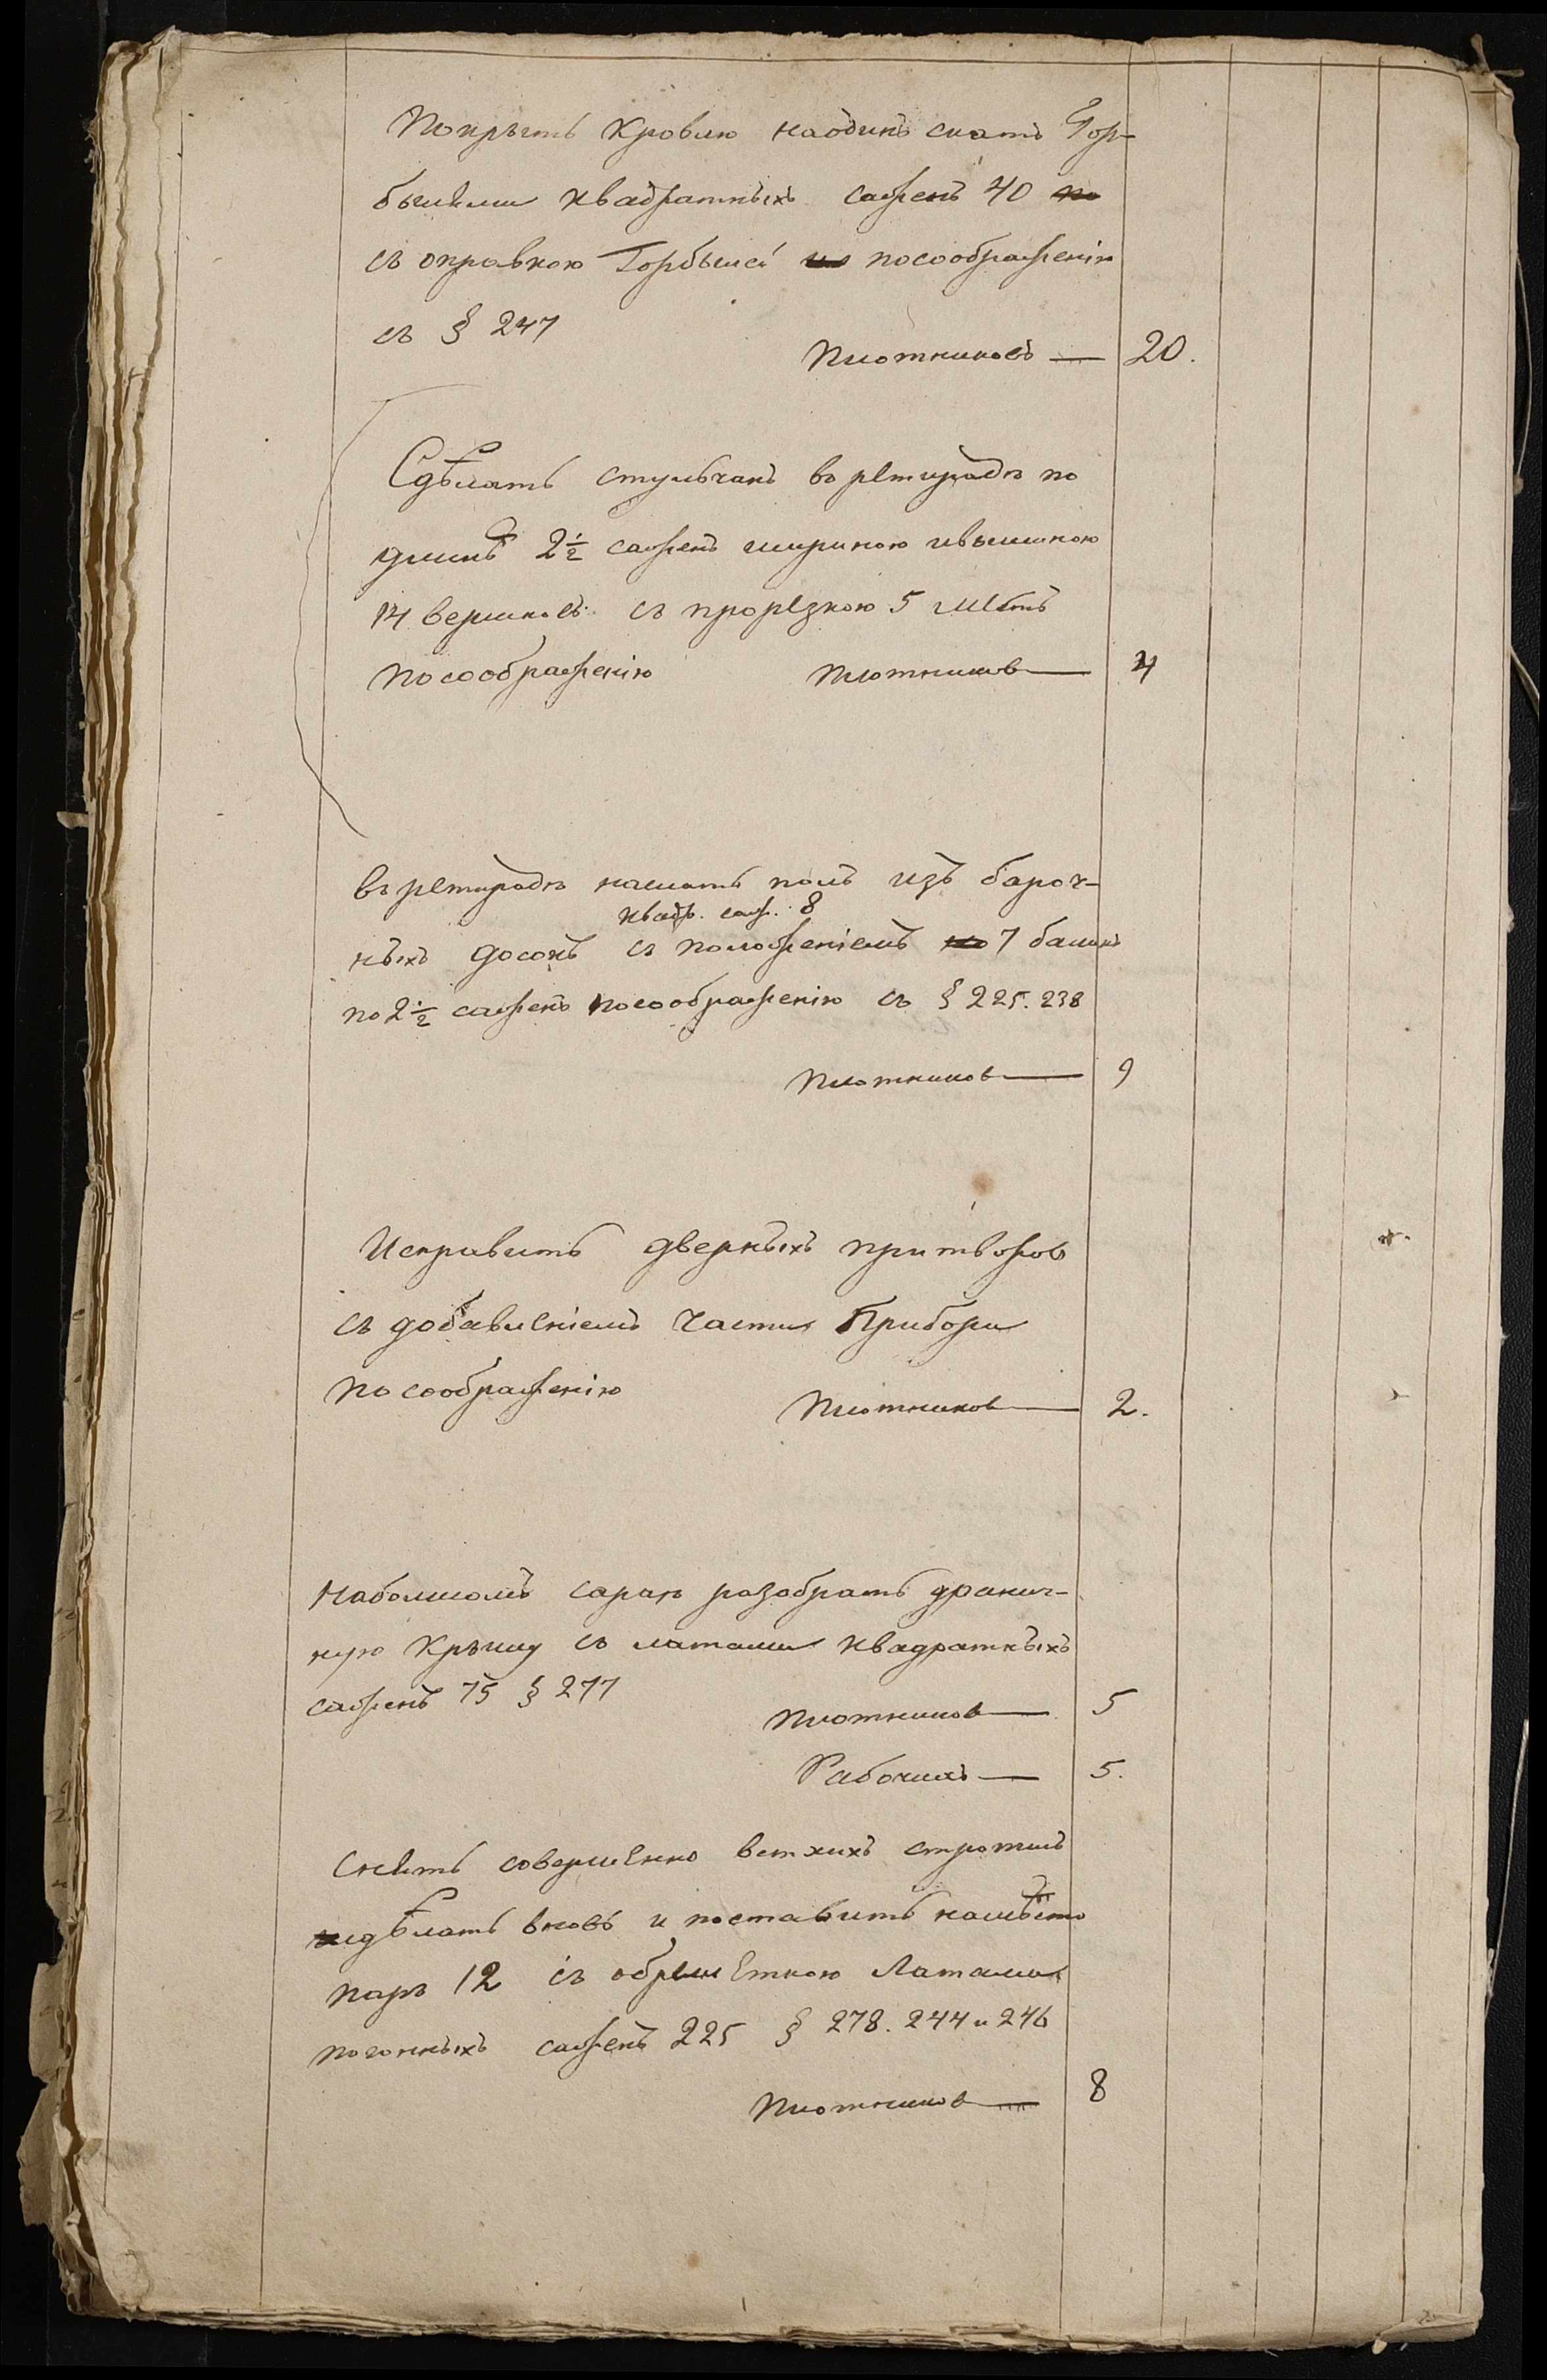 Покрыть кровлю наодинъ скатъ Гор-
былями квадратныхъ саженъ 40 по
съ оправкою Горбылей посоображенію
съ § 247
Плотниковъ — 20.
Сдѣлать стульчакъ въ ретирадѣ по
длинѣ 2½ саженъ шириною ивышиною
14 вершковъ съ прорезкою 5 мѣстъ
посоображенію Плотниковъ — 4
въ ретирадѣ наслать полъ изъ бароч-
квадр. саж. 8
ныхъ досокъ съ положеніемъ 7 балокъ
по 2½ саженъ посоображенію съ § 225. 238
Плотниковъ — 9
Исправить дверныхъ притворов
съ добавленіемъ части Прибори
по соображенію
Плотниковъ — 2.
Наболшомъ сараѣ разобрать дранич-
ную крышу съ латами квадратныхъ
саженъ 75 § 277
Плотников — 5
Рабочихъ — 5.
Снять совершенно ветхихъ стропилъ
сдѣлать вновь и поставить намѣсто
паръ 12 съ обрешеткою Латами
погонныхъ саженъ 225 § 278. 244 и 246
Плотниковъ — 8